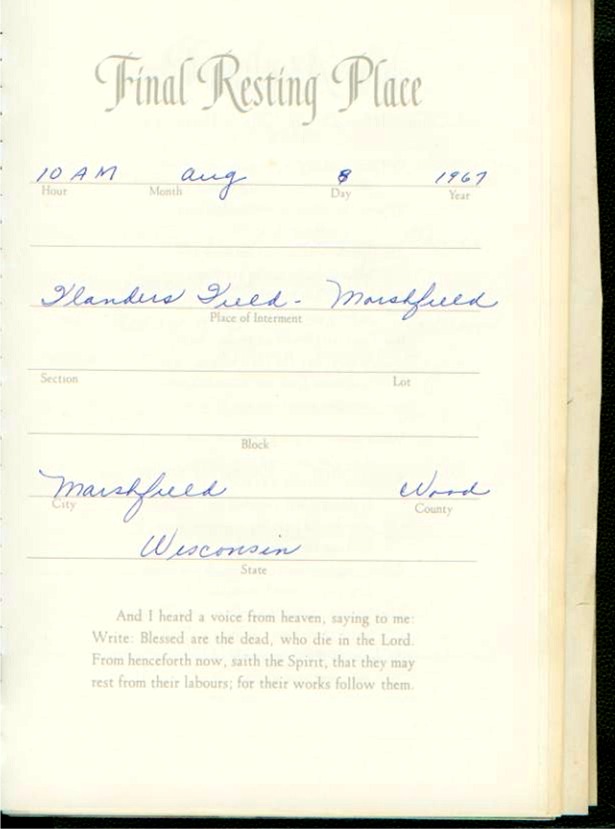 Final Resting Place
10 AM aug 8 1967
Hour Month Day Year
Flanders Field - Marshfield
Place of Interment
Section Lot
Block
Marshfield Wood
City County
Wisconsin
State
And I heard a voice from heaven, saying to me:
Write: Blessed are the dead, who die in the Lord.
From henceforth now, saith the Spirit, that they may
rest from their labours; for their works follow them.